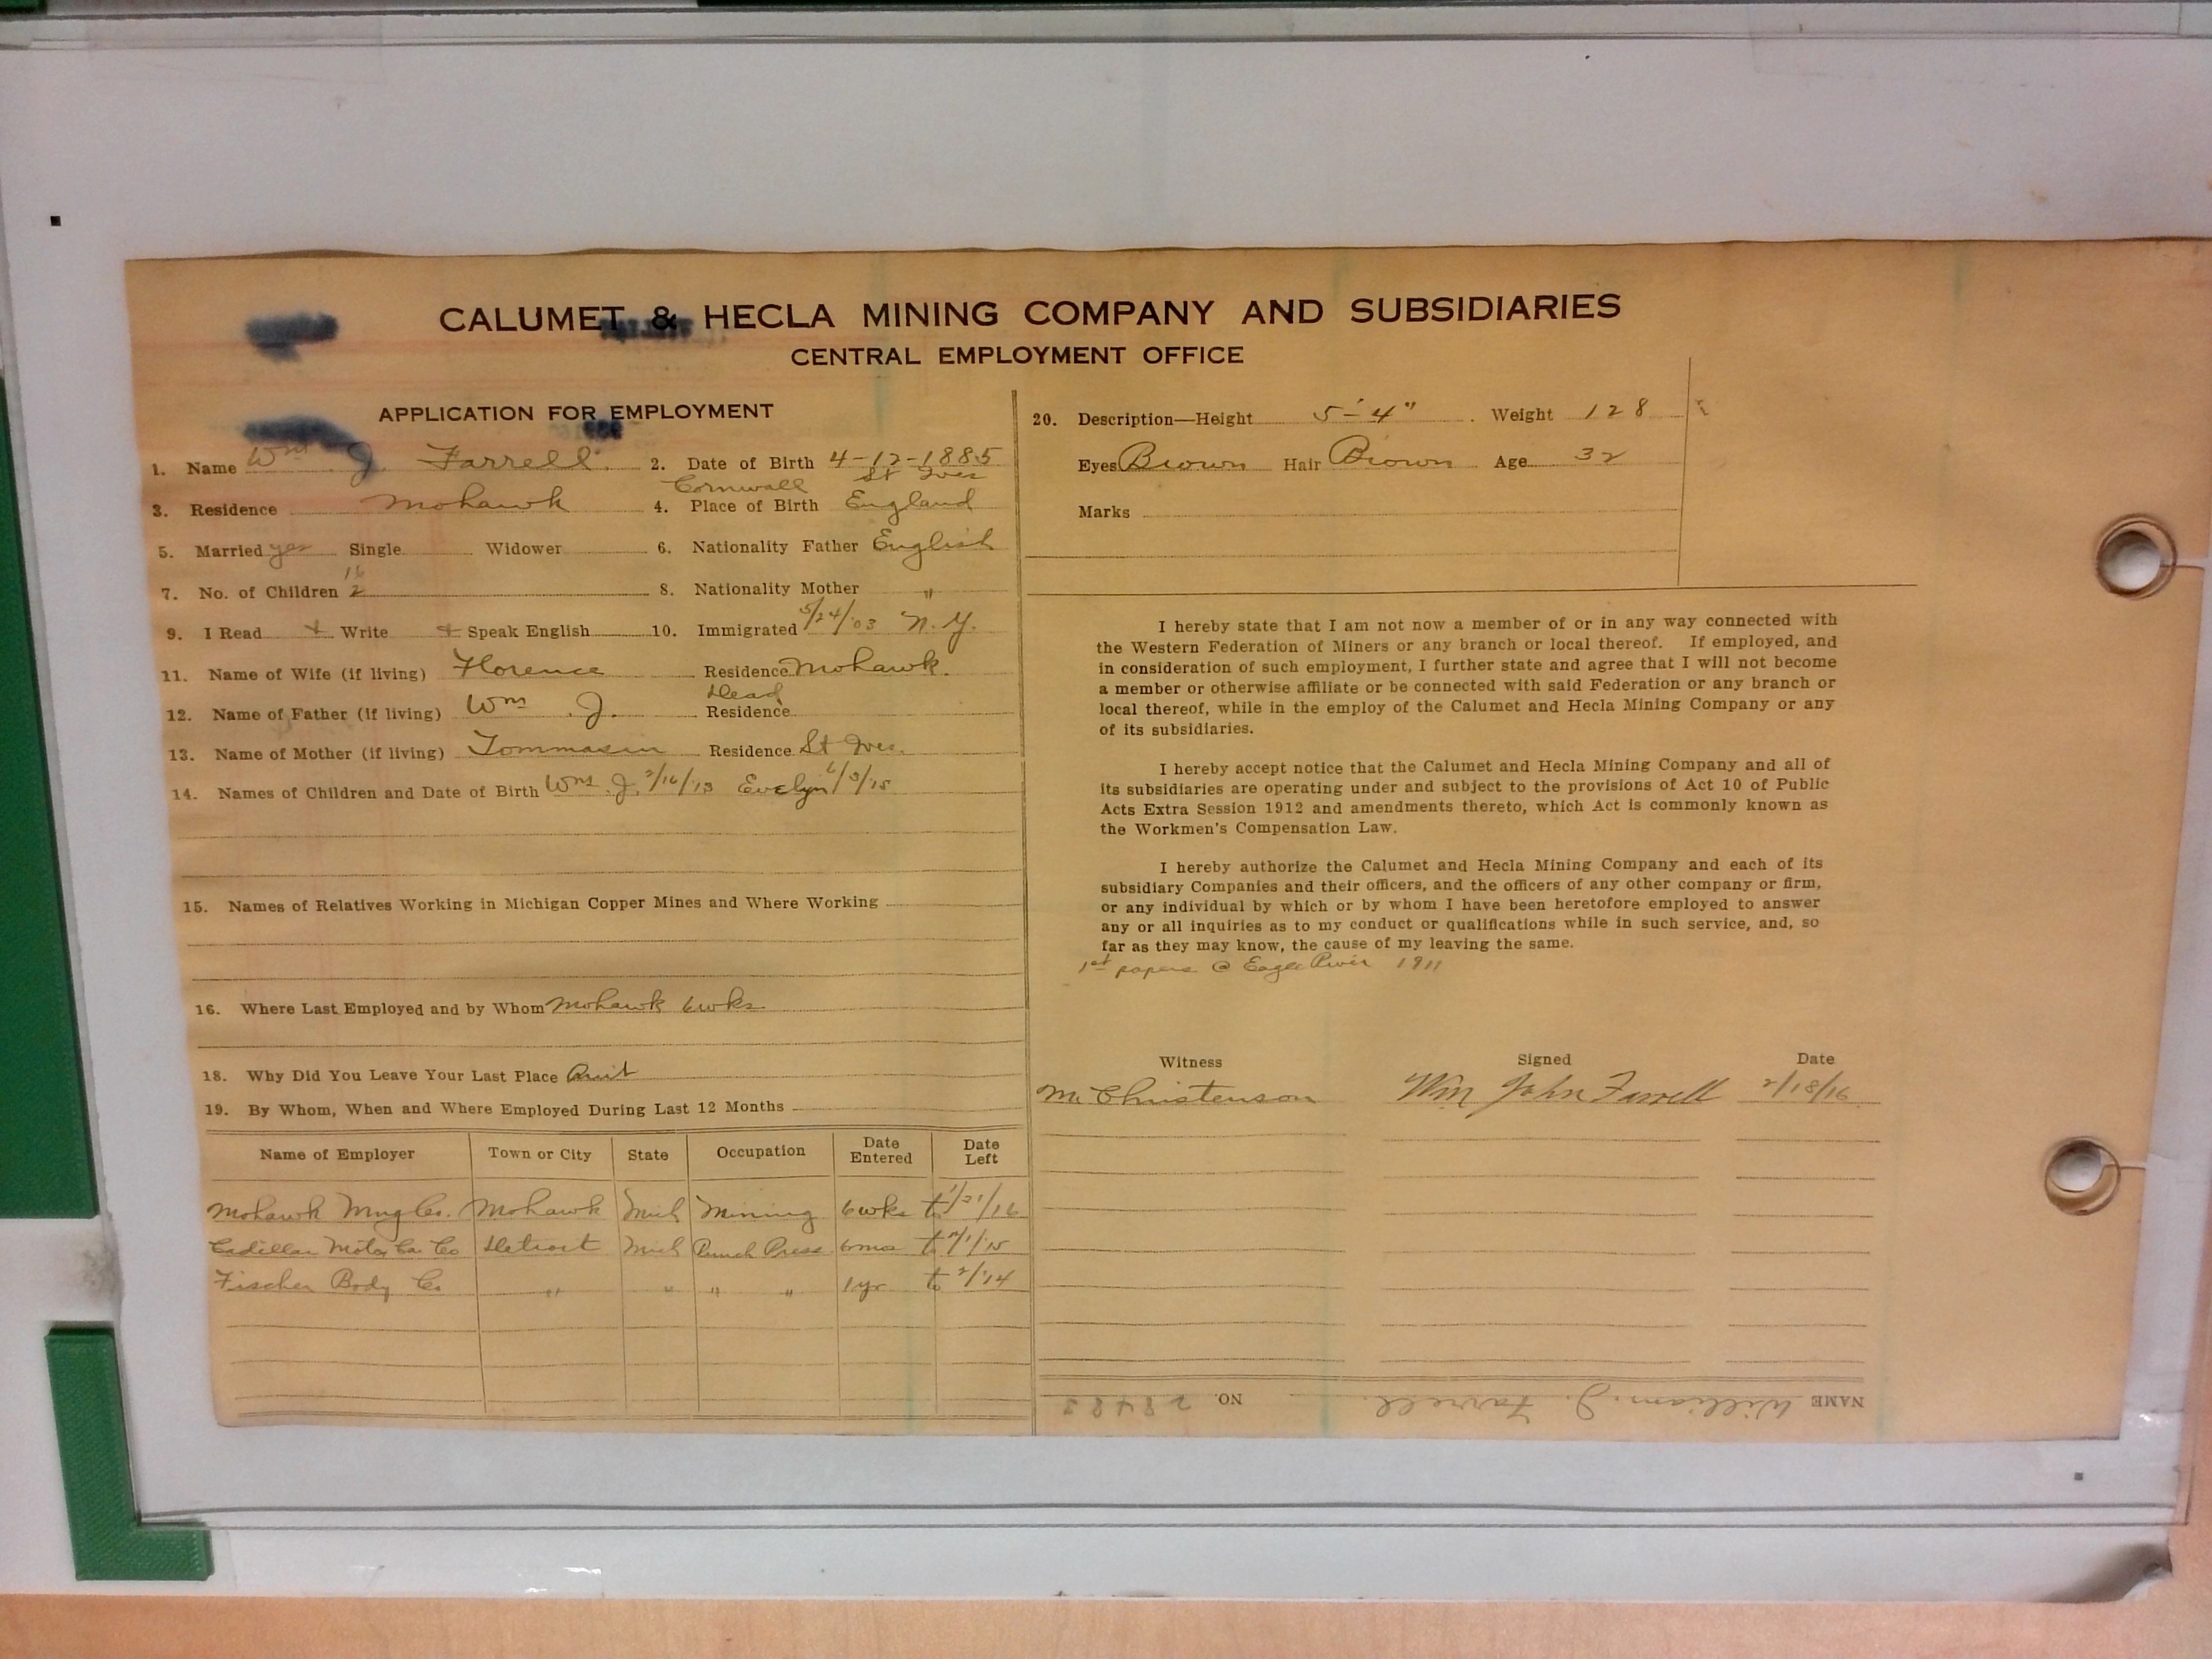 CALUMET & HECLA MINING COMPANY AND SUBSIDIARIES
CENTRAL EMPLOYMENT OFFICE
APPLICATION FOR EMPLOYMENT
1. Name Wm J. Farrell. 2. Date of Birth 4-12-1885
Cornwall St Ives
3. Residence Mohawk 4. Place of Birth England
5. Married yes Single Widower 6. Nationality Father English
16
7. No. of Children 2 8. Nationality Mother "
9. I Read + Write + Speak English 10. Immigrated 5/24/03 N.Y.
11. Name of Wife (if living) Florence Residence Mohawk.
Dead
12. Name of Father (if living) Wm J. Residence
13. Name of Mother (if living) Tommasin Residence St Ives.
14. Names of Children and Date of Birth Wm. J. 2/16/13 Evelyn 6/3/15
15. Names of Relatives Working in Michigan Copper Mines and Where Working
16. Where Last Employed and by Whom Mohawk 6wks
18. Why Did You Leave Your Last Place Quit
19. By Whom, When and Where Employed During Last 12 Months
Name of Employer Town or City State Occupation Date Entered Date Left
Mohawk Mng Co. Mohawk Mich Mining 6wks to 1/21/16
Cadillac Motor Car Co Detroit Mich Punch Press 6mos to /1/15
Fischer Body Co " " " " 1yr to 2/14
20. Description—Height 5'-4" . Weight 128
Eyes Brown Hair Brown Age 32
Marks
I hereby state that I am not now a member of or in any way connected with
the Western Federation of Miners or any branch or local thereof. If employed, and
in consideration of such employment, I further state and agree that I will not become
a member or otherwise affiliate or be connected with said Federation or any branch or
local thereof, while in the employ of the Calumet and Hecla Mining Company or any
of its subsidiaries.
I hereby accept notice that the Calumet and Hecla Mining Company and all of
its subsidiaries are operating under and subject to the provisions of Act 10 of Public
Acts Extra Session 1912 and amendments thereto, which Act is commonly known as
the Workmen's Compensation Law.
I hereby authorize the Calumet and Hecla Mining Company and each of its
subsidiary Companies and their officers, and the officers of any other company or firm,
or any individual by which or by whom I have been heretofore employed to answer
any or all inquiries as to my conduct or qualifications while in such service, and, so
far as they may know, the cause of my leaving the same.
1st papers @ Eagle River 1911
Witness Signed Date
M. Christenson Wm John Farrell 2/18/16
NAME William J. Farrell. NO. 28483